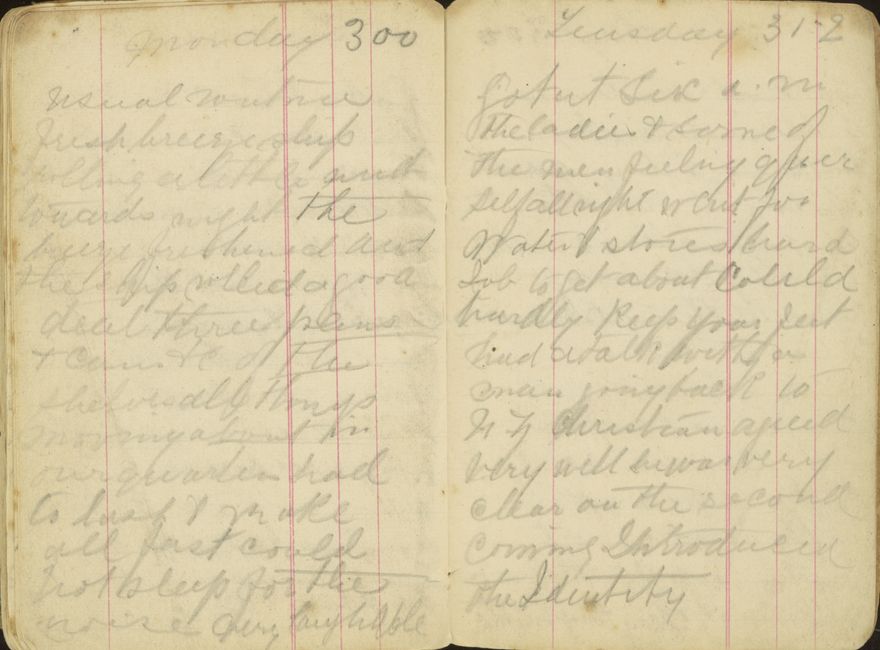 Monday 300
usual routine
fresh breeze ship
rolling a little and
towards night the
breeze freshened and
the ship rolled a good
deal three pans
& came of the
shelves all things
moving about in
our quarters had
to lash & make
all fast could
not sleep for the
noise very laughable
Tuesday 31-2
Got ut Six a.m
the ladies & some of
the men feeling queer
Self all right went for
Water & stores hard
Job to get about Could
hardly Keep your feet
had a talk with a
man going back to
N Z Christian agreed
very well he was very
clear on the second
coming Introduced
the Identity